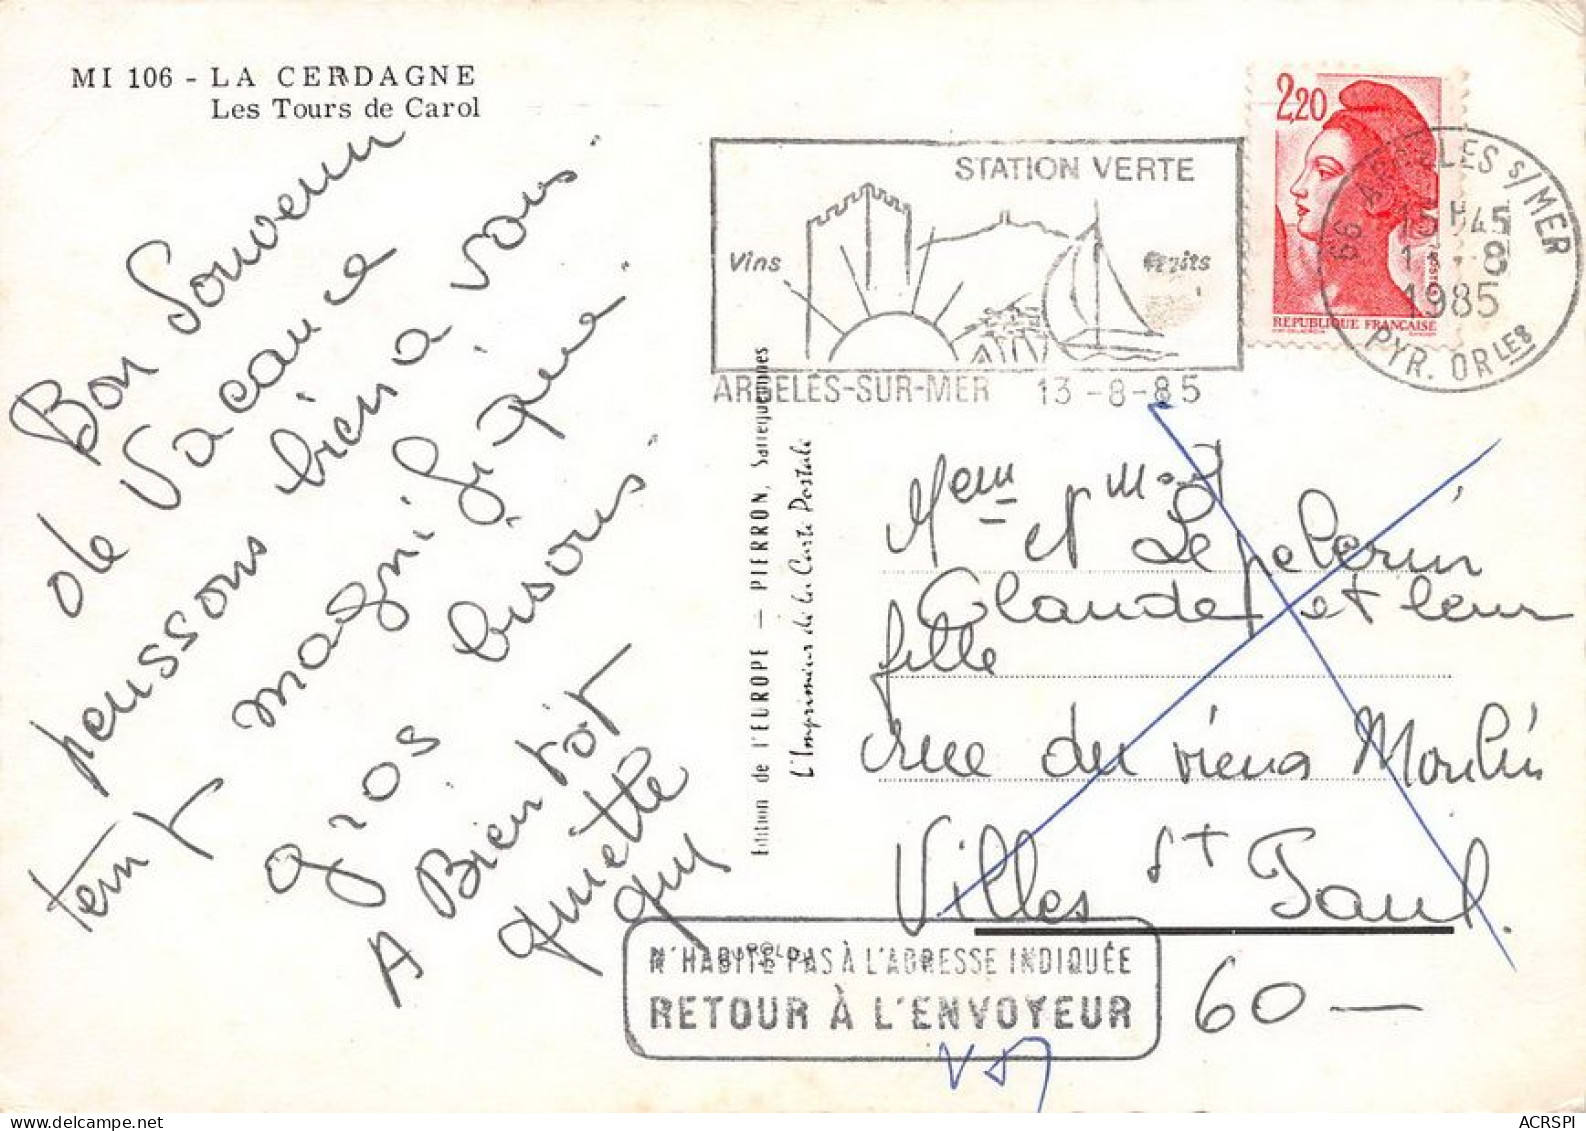 MI 106 - LA CERDAGNE
Les Tours de Carol
Bon Souvenir
de Vacance
penssons bien a vous.
temp magnifique.
gros bisous.
A Bien tôt
quiette
guy
Edition de l'EUROPE - PIERRON, Sarreguemines
L'Imprimeur de la Carte Postale
STATION VERTE
Vins
Fruits
ARGELÈS-SUR-MER 13-8-85
2,20
REPUBLIQUE FRANÇAISE
66 ARGELES S/MER
15 H 45
8
1985
PYR. OR LES
et Lepelerin
Claude et leur
fille
rue du vieux Moulin
Villes St Paul.
60 —
N'HABITE PAS À L'ADRESSE INDIQUÉE
RETOUR À L'ENVOYEUR
ACRSPI